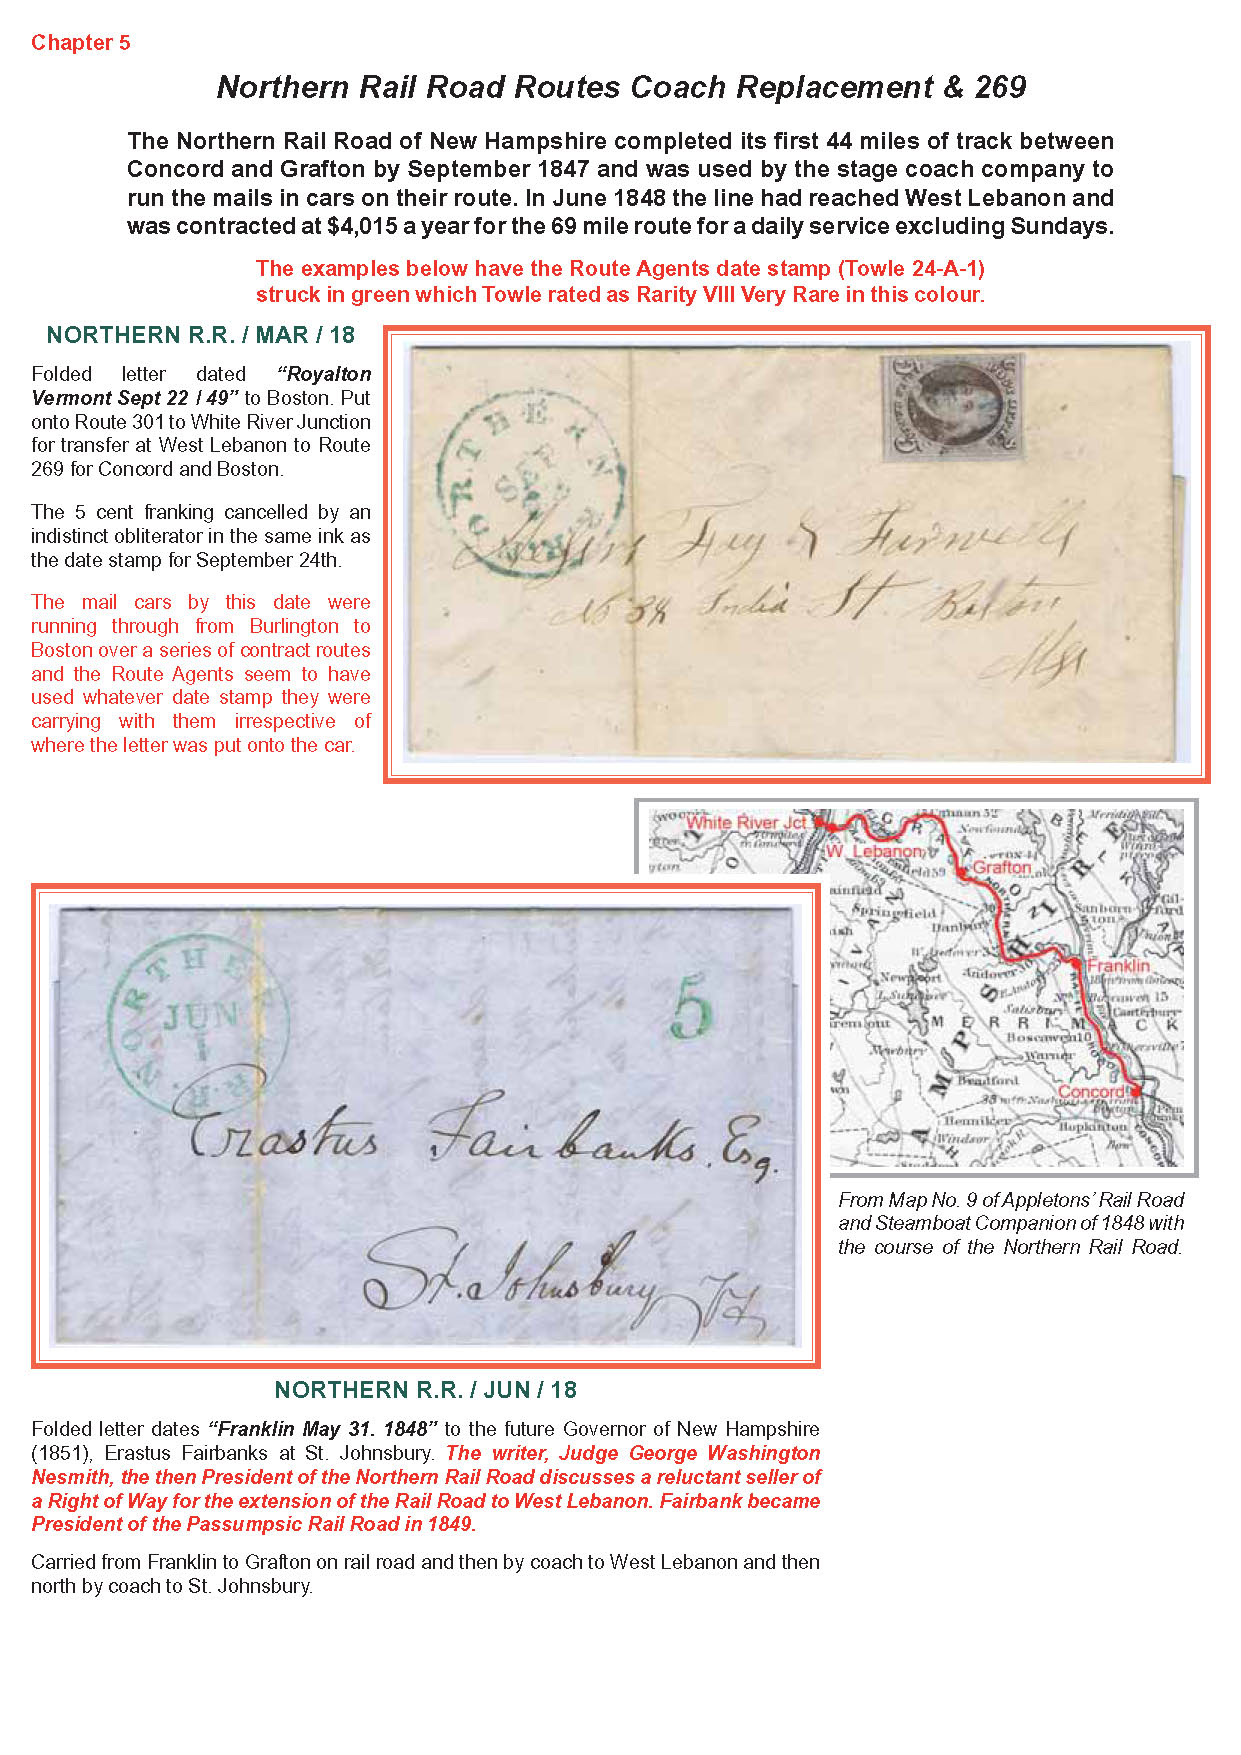 Chapter 5
Northern Rail Road Routes Coach Replacement & 269
The Northern Rail Road of New Hampshire completed its first 44 miles of track between
Concord and Grafton by September 1847 and was used by the stage coach company to
run the mails in cars on their route. In June 1848 the line had reached West Lebanon and
was contracted at $4,015 a year for the 69 mile route for a daily service excluding Sundays.
The examples below have the Route Agents date stamp (Towle 24-A-1)
struck in green which Towle rated as Rarity VIII Very Rare in this colour.
NORTHERN R.R. / MAR / 18
Folded letter dated “Royalton
Vermont Sept 22 / 49” to Boston. Put
onto Route 301 to White River Junction
for transfer at West Lebanon to Route
269 for Concord and Boston.
The 5 cent franking cancelled by an
indistinct obliterator in the same ink as
the date stamp for September 24th.
The mail cars by this date were
running through from Burlington to
Boston over a series of contract routes
and the Route Agents seem to have
used whatever date stamp they were
carrying with them irrespective of
where the letter was put onto the car.
NORTHERN R.R.
SEP
Fay & Farwells
No 38 India St. Boston
White River Jct.
W. Lebanon
Grafton
Springfield
Danbury
Andover
Franklin
Salisbury
Canterbury
Boscawen 10
Warner
Newbury
Bradford
Concord
Henniker
Hopkinton
Windsor
MERRIMACK
NORTHE R.R.
JUN
1
5
Erastus Fairbanks. Esq.
St. Johnsbury Vt
From Map No. 9 of Appletons’ Rail Road
and Steamboat Companion of 1848 with
the course of the Northern Rail Road.
NORTHERN R.R. / JUN / 18
Folded letter dates “Franklin May 31. 1848” to the future Governor of New Hampshire
(1851), Erastus Fairbanks at St. Johnsbury. The writer, Judge George Washington
Nesmith, the then President of the Northern Rail Road discusses a reluctant seller of
a Right of Way for the extension of the Rail Road to West Lebanon. Fairbank became
President of the Passumpsic Rail Road in 1849.
Carried from Franklin to Grafton on rail road and then by coach to West Lebanon and then
north by coach to St. Johnsbury.